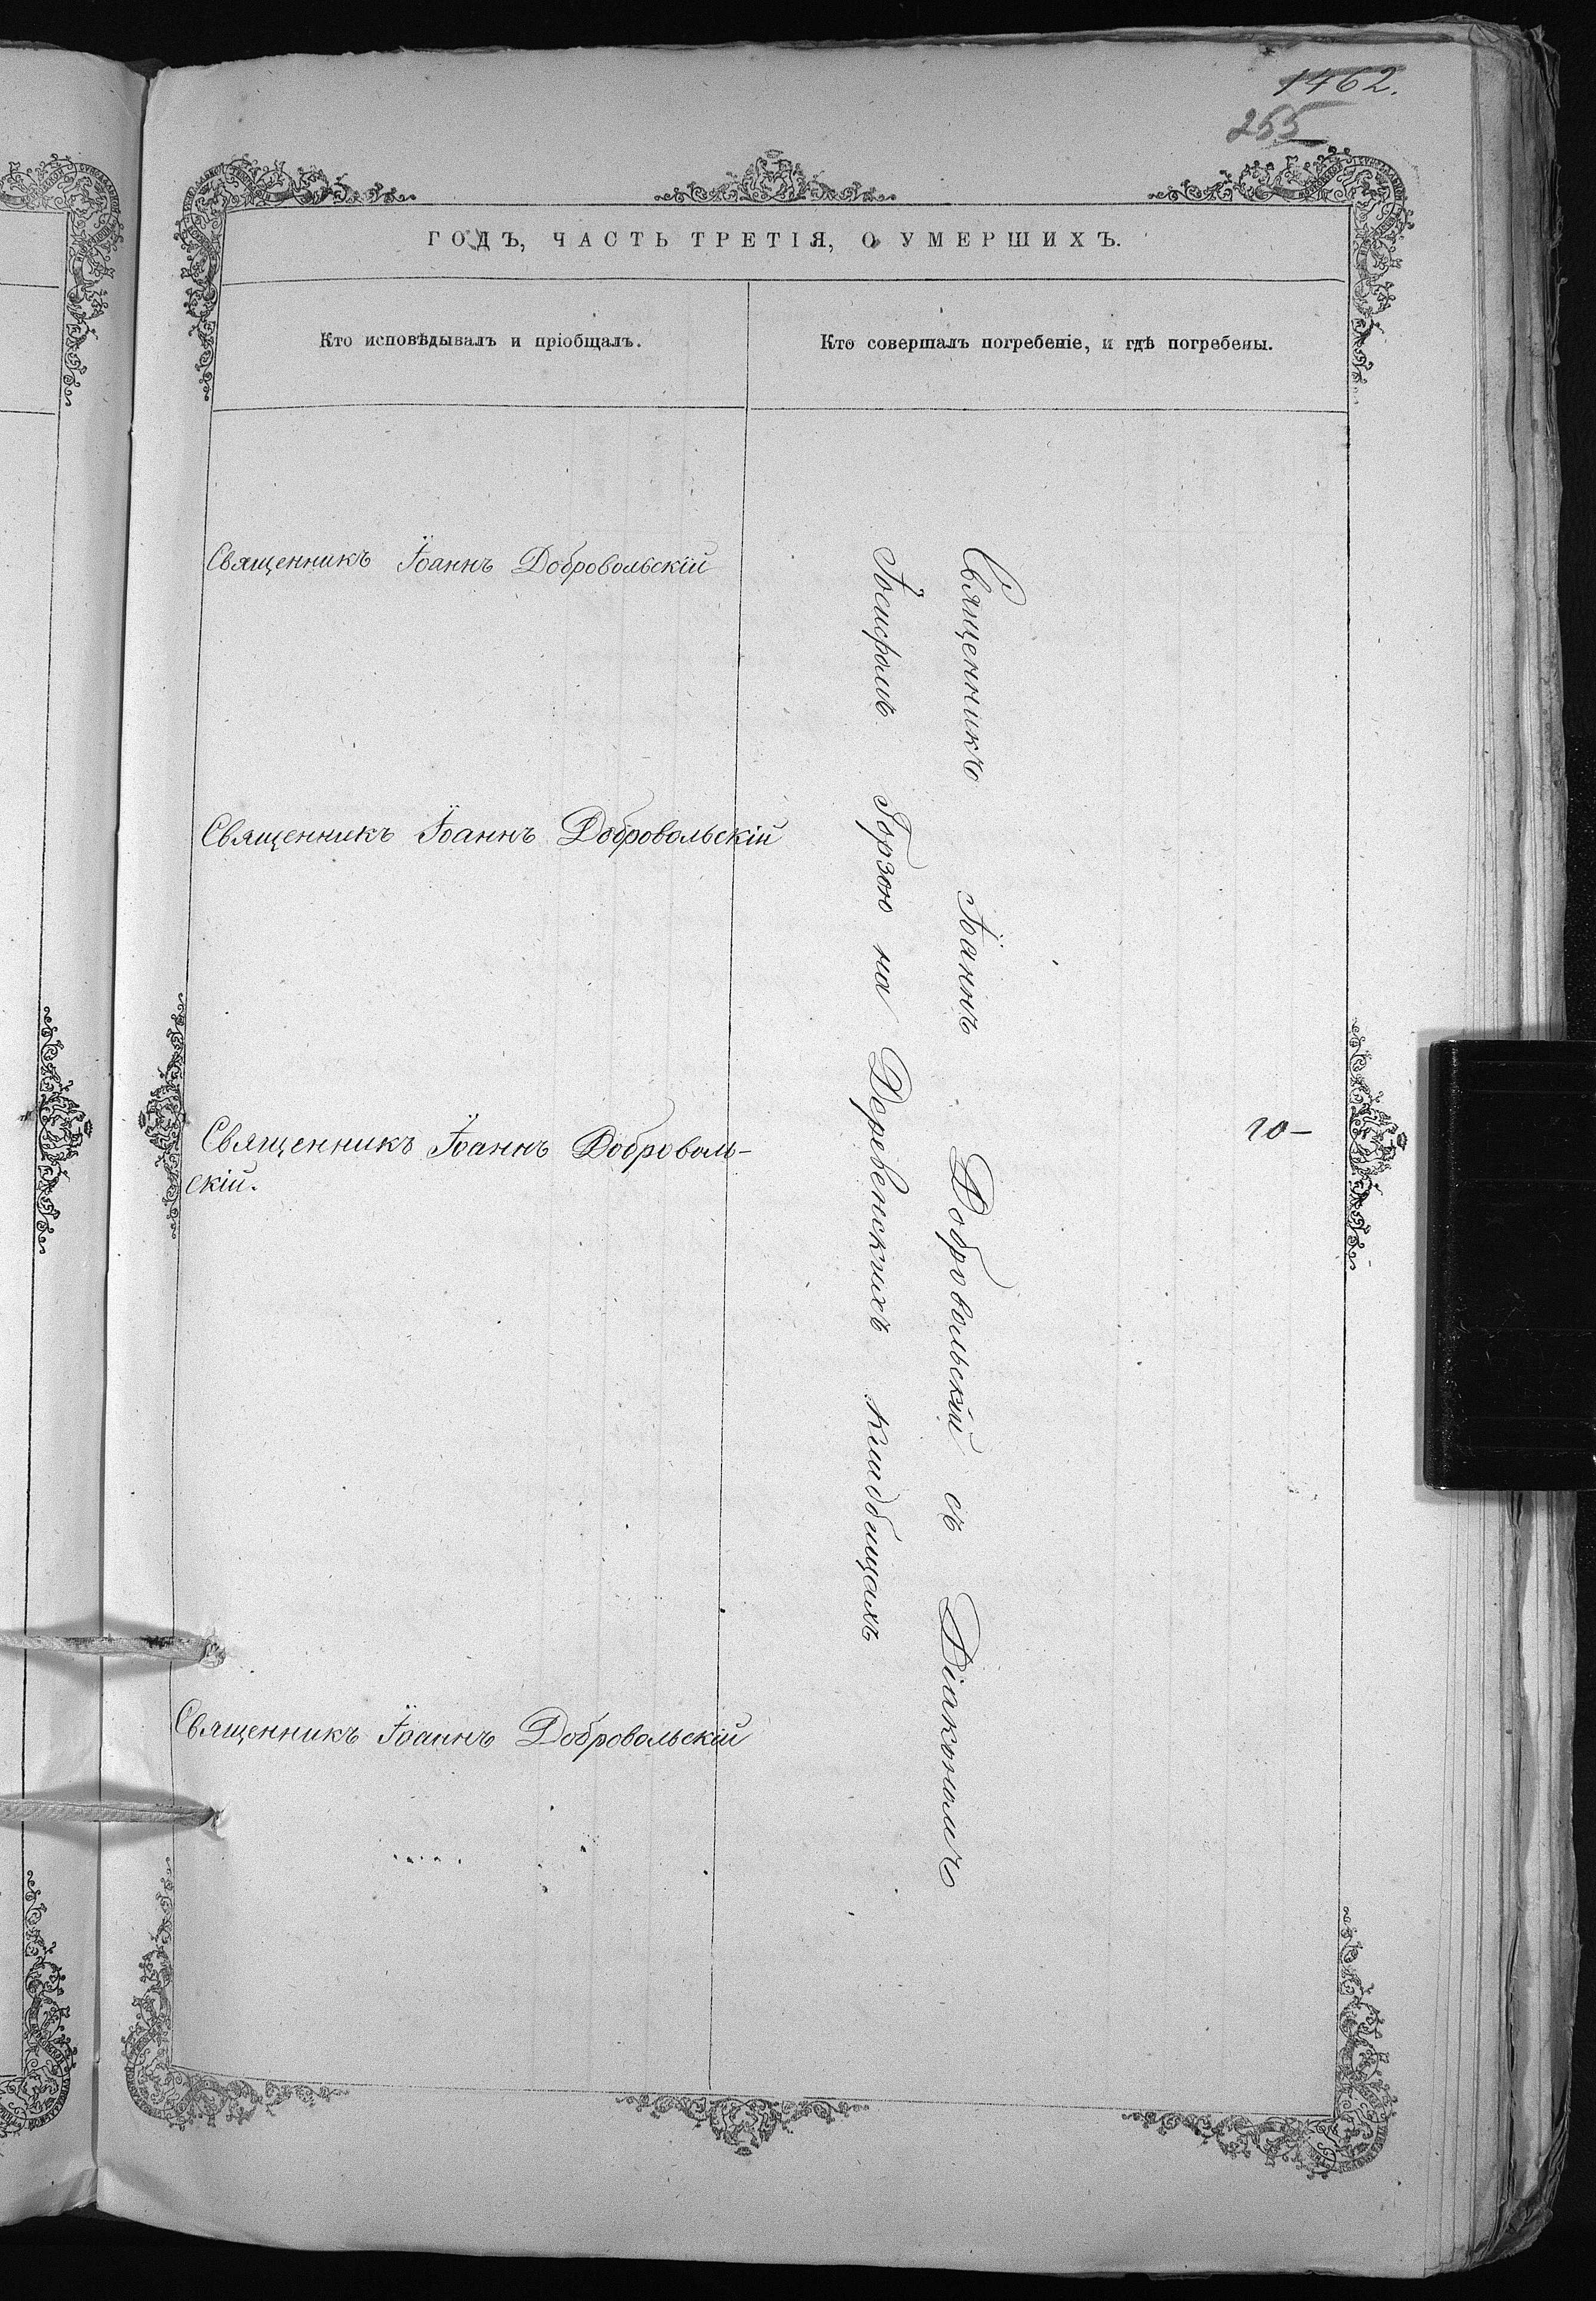 1462.
255
ГОДЪ, ЧАСТЬ ТРЕТІЯ, О УМЕРШИХЪ.
Кто исповѣдывалъ и пріобщалъ.
Кто совершалъ погребеніе, и гдѣ погребены.
Священникъ Іоаннъ Добровольскій
Священникъ Іоаннъ Добровольскій
Священникъ Іоаннъ Доброволь-
скій.
Священникъ Іоаннъ Добровольскій
Священникъ Іоаннъ Добровольскій съ Діакономъ
Іосифомъ на Деревенскихъ кладбищахъ
10-